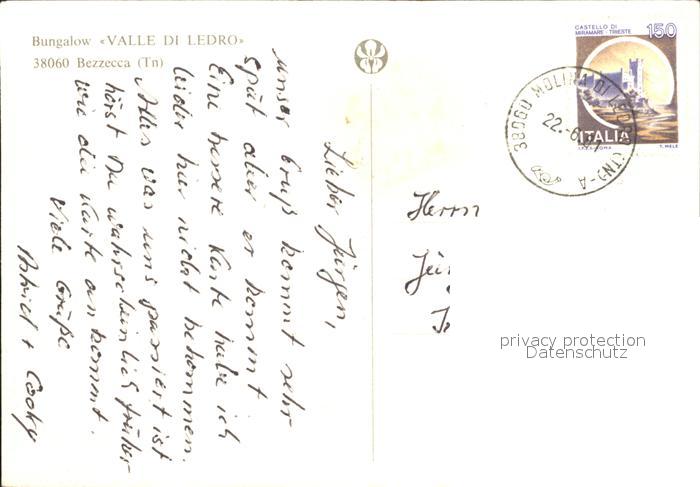 Bungalow «VALLE DI LEDRO»
38060 Bezzecca (Tn)
Lieber Jürgen,
unser Gruß kommt sehr
spät aber er kommt
Eine bessere Karte habe ich
leider hier nicht bekommen.
Alles was uns passiert ist
hörst Du wahrscheinlich früher
wie die Karte ankommt.
Viele Grüße
+ Cooky
CASTELLO DI
MIRAMARE · TRIESTE
150
ITALIA
I.P.Z.S. ROMA
T. MELE
38060 MOLINA DI LEDRO (TN) - A
22.-6.
Herrn
privacy protection
Datenschutz